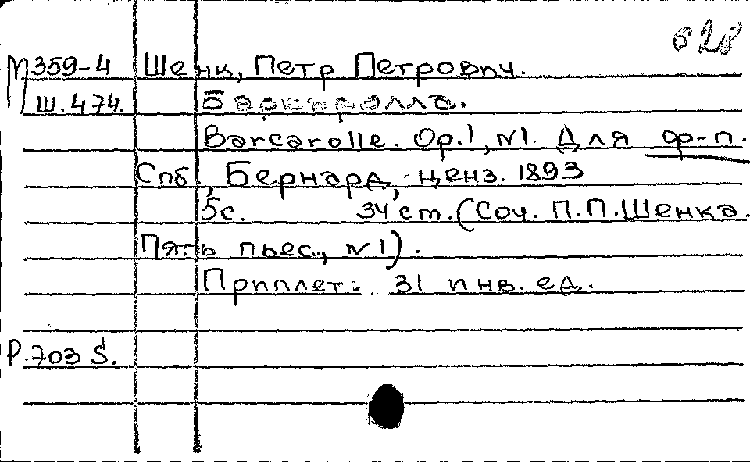 628
М359-4 Шенк, Петр Петрович.
Ш.474. Баркаролла.
Barcarolle. Op.1, №1. Для ф-п.
Спб, Бернард, ценз. 1893
5с. 34 ст. (Соч. П.П.Шенка.
Пять пьес., №1).
Приплет: 31 инв. ед.
Р.703 S.